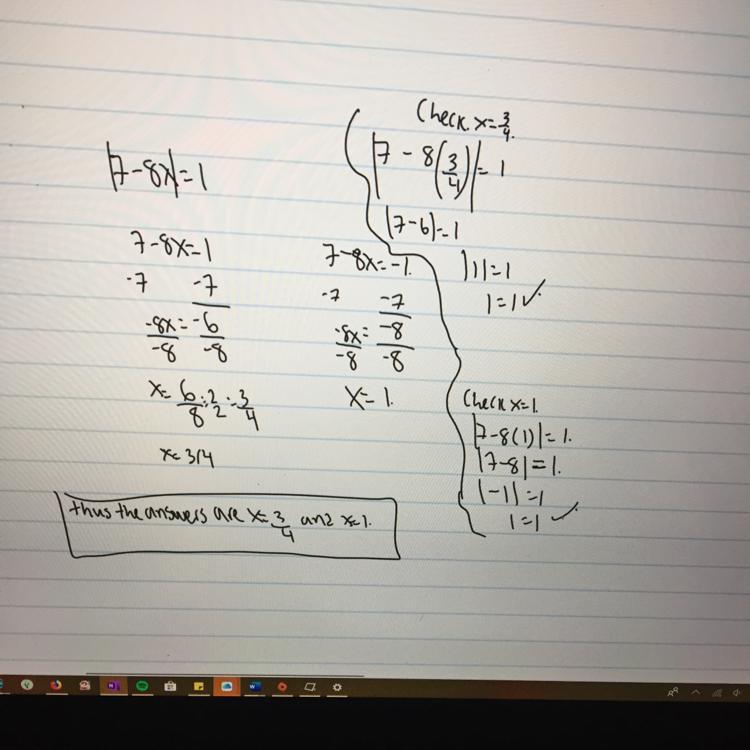 |7-8x|=1
7-8x=1
-7 -7
-8x=-6
-8 -8
x=6/8÷2/2=3/4
x=3/4
7-8x=-1.
-7 -7
-8x=-8
-8 -8
x=1.
thus the answers are x=3/4 and x=1.
Check x=3/4.
|7-8(3/4)|=1
|7-6|=1
|1|=1
1=1✓
Check x=1.
|7-8(1)|=1.
|7-8|=1.
|-1|=1
1=1✓